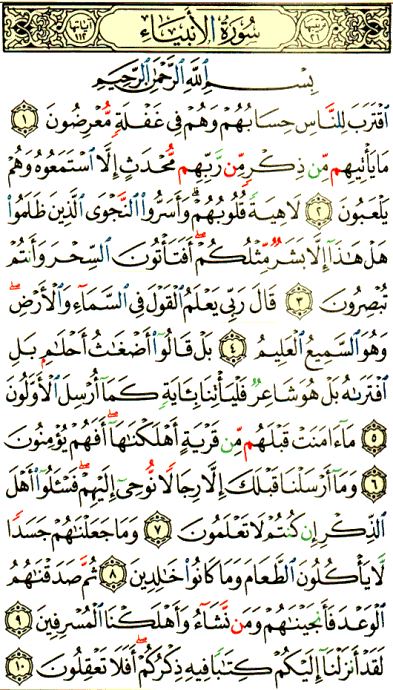 ترتيبها ٢١ سُورَةُ الأَنبِيَاءِ آياتها ١١٢
بِسْمِ اللَّهِ الرَّحْمَٰنِ الرَّحِيمِ
ٱقْتَرَبَ لِلنَّاسِ حِسَابُهُمْ وَهُمْ فِى غَفْلَةٍ مُّعْرِضُونَ ١
مَا يَأْتِيهِم مِّن ذِكْرٍ مِّن رَّبِّهِم مُّحْدَثٍ إِلَّا ٱسْتَمَعُوهُ وَهُمْ
يَلْعَبُونَ ٢ لَاهِيَةً قُلُوبُهُمْ ۗ وَأَسَرُّوا۟ ٱلنَّجْوَى ٱلَّذِينَ ظَلَمُوا۟
هَلْ هَٰذَآ إِلَّا بَشَرٌ مِّثْلُكُمْ ۖ أَفَتَأْتُونَ ٱلسِّحْرَ وَأَنتُمْ
تُبْصِرُونَ ٣ قَالَ رَبِّى يَعْلَمُ ٱلْقَوْلَ فِى ٱلسَّمَآءِ وَٱلْأَرْضِ ۖ
وَهُوَ ٱلسَّمِيعُ ٱلْعَلِيمُ ٤ بَلْ قَالُوٓا۟ أَضْغَٰثُ أَحْلَٰمٍ بَلِ
ٱفْتَرَىٰهُ بَلْ هُوَ شَاعِرٌ فَلْيَأْتِنَا بِـَٔايَةٍ كَمَآ أُرْسِلَ ٱلْأَوَّلُونَ
٥ مَآ ءَامَنَتْ قَبْلَهُم مِّن قَرْيَةٍ أَهْلَكْنَٰهَآ ۖ أَفَهُمْ يُؤْمِنُونَ
٦ وَمَآ أَرْسَلْنَا قَبْلَكَ إِلَّا رِجَالًا نُّوحِىٓ إِلَيْهِمْ ۖ فَسْـَٔلُوٓا۟ أَهْلَ
ٱلذِّكْرِ إِن كُنتُمْ لَا تَعْلَمُونَ ٧ وَمَا جَعَلْنَٰهُمْ جَسَدًا
لَّا يَأْكُلُونَ ٱلطَّعَامَ وَمَا كَانُوا۟ خَٰلِدِينَ ٨ ثُمَّ صَدَقْنَٰهُمُ
ٱلْوَعْدَ فَأَنجَيْنَٰهُمْ وَمَن نَّشَآءُ وَأَهْلَكْنَا ٱلْمُسْرِفِينَ ٩
لَقَدْ أَنزَلْنَآ إِلَيْكُمْ كِتَٰبًا فِيهِ ذِكْرُكُمْ ۖ أَفَلَا تَعْقِلُونَ ١٠